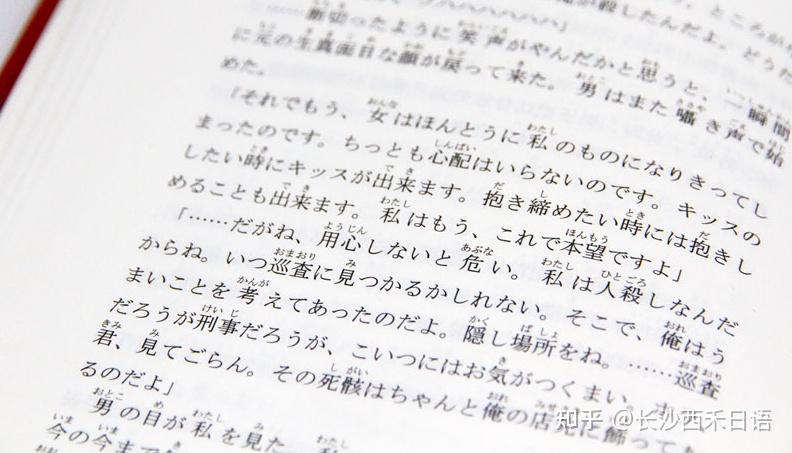 ところが
殺したんだよ。どう
ったように笑声がやんだかと思うと、一瞬間
に元の生真面目な顔が戻って来た。男はまた囁き声で始
めた。
「それでもう、女はほんとうに私のものになりきってし
まったのです。ちっとも心配はいらないのです。キッスの
したい時にキッスが出来ます。抱き締めたい時には抱きし
めることも出来ます。私はもう、これで本望ですよ」
「……だがね、用心しないと危い。私は人殺しなんだ
からね。いつ巡査に見つかるかしれない。そこで、俺はう
まいことを考えてあったのだよ。隠し場所をね。……巡査
だろうが刑事だろうが、こいつにはお気がつくまい。
君、見てごらん。その死骸はちゃんと俺の店先に飾って
るのだよ」
男の目が私を見た。
今の今まで
知乎 @长沙西禾日语